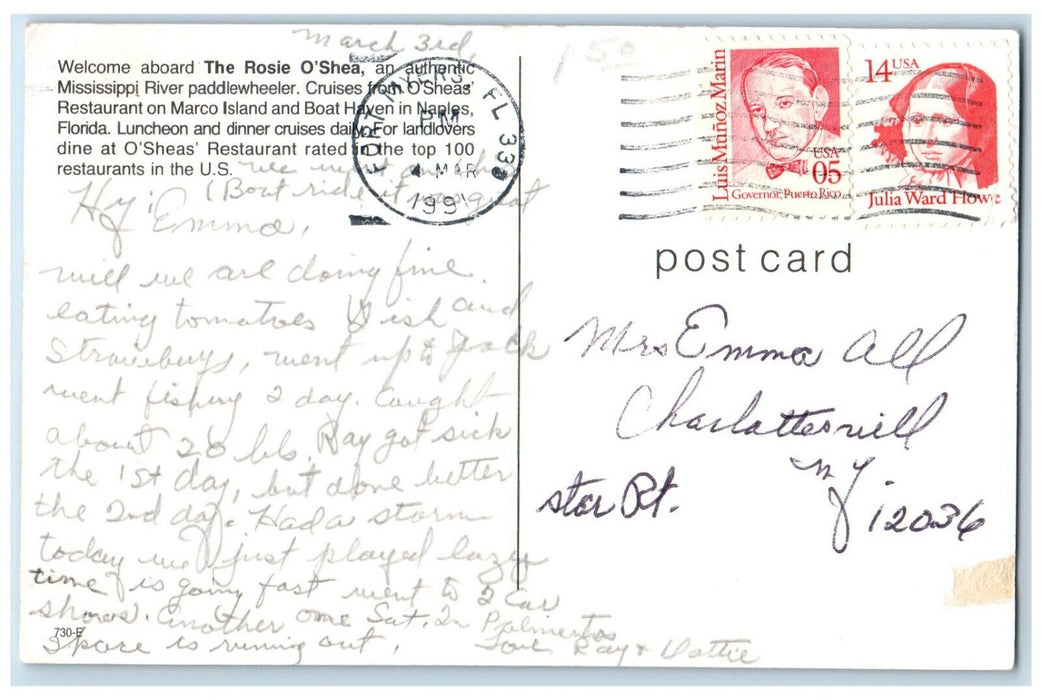 March 3rd,
150
Welcome aboard The Rosie O'Shea, an authentic
Mississippi River paddlewheeler. Cruises from O'Sheas'
Restaurant on Marco Island and Boat Haven in Naples,
Florida. Luncheon and dinner cruises daily. For landlovers
dine at O'Sheas' Restaurant rated in the top 100
restaurants in the U.S.
we went on the
(Boat ride it was great
Hy Emma,
well we are doing fine
eating tomatoes fish and
Strawburys, went up to Jack
went fishing 2 day. Caught
about 20 lbs. Ray got sick
the 1st day, but done better
the 2nd day. Had a storm
today we just played lazy
time is going fast went to 2 Car
shows. Another one Sat. In Palmento
Space is running out,
Love Ray & Dattie
730-E
FORT MYERS FL 339
PM
4 MAR
199
Luis Muñoz Marin
USA
05
Governor, Puerto Rico
14 USA
Julia Ward Howe
post card
Mrs Emma All
Charlattervill
NY
star Rt. 12036